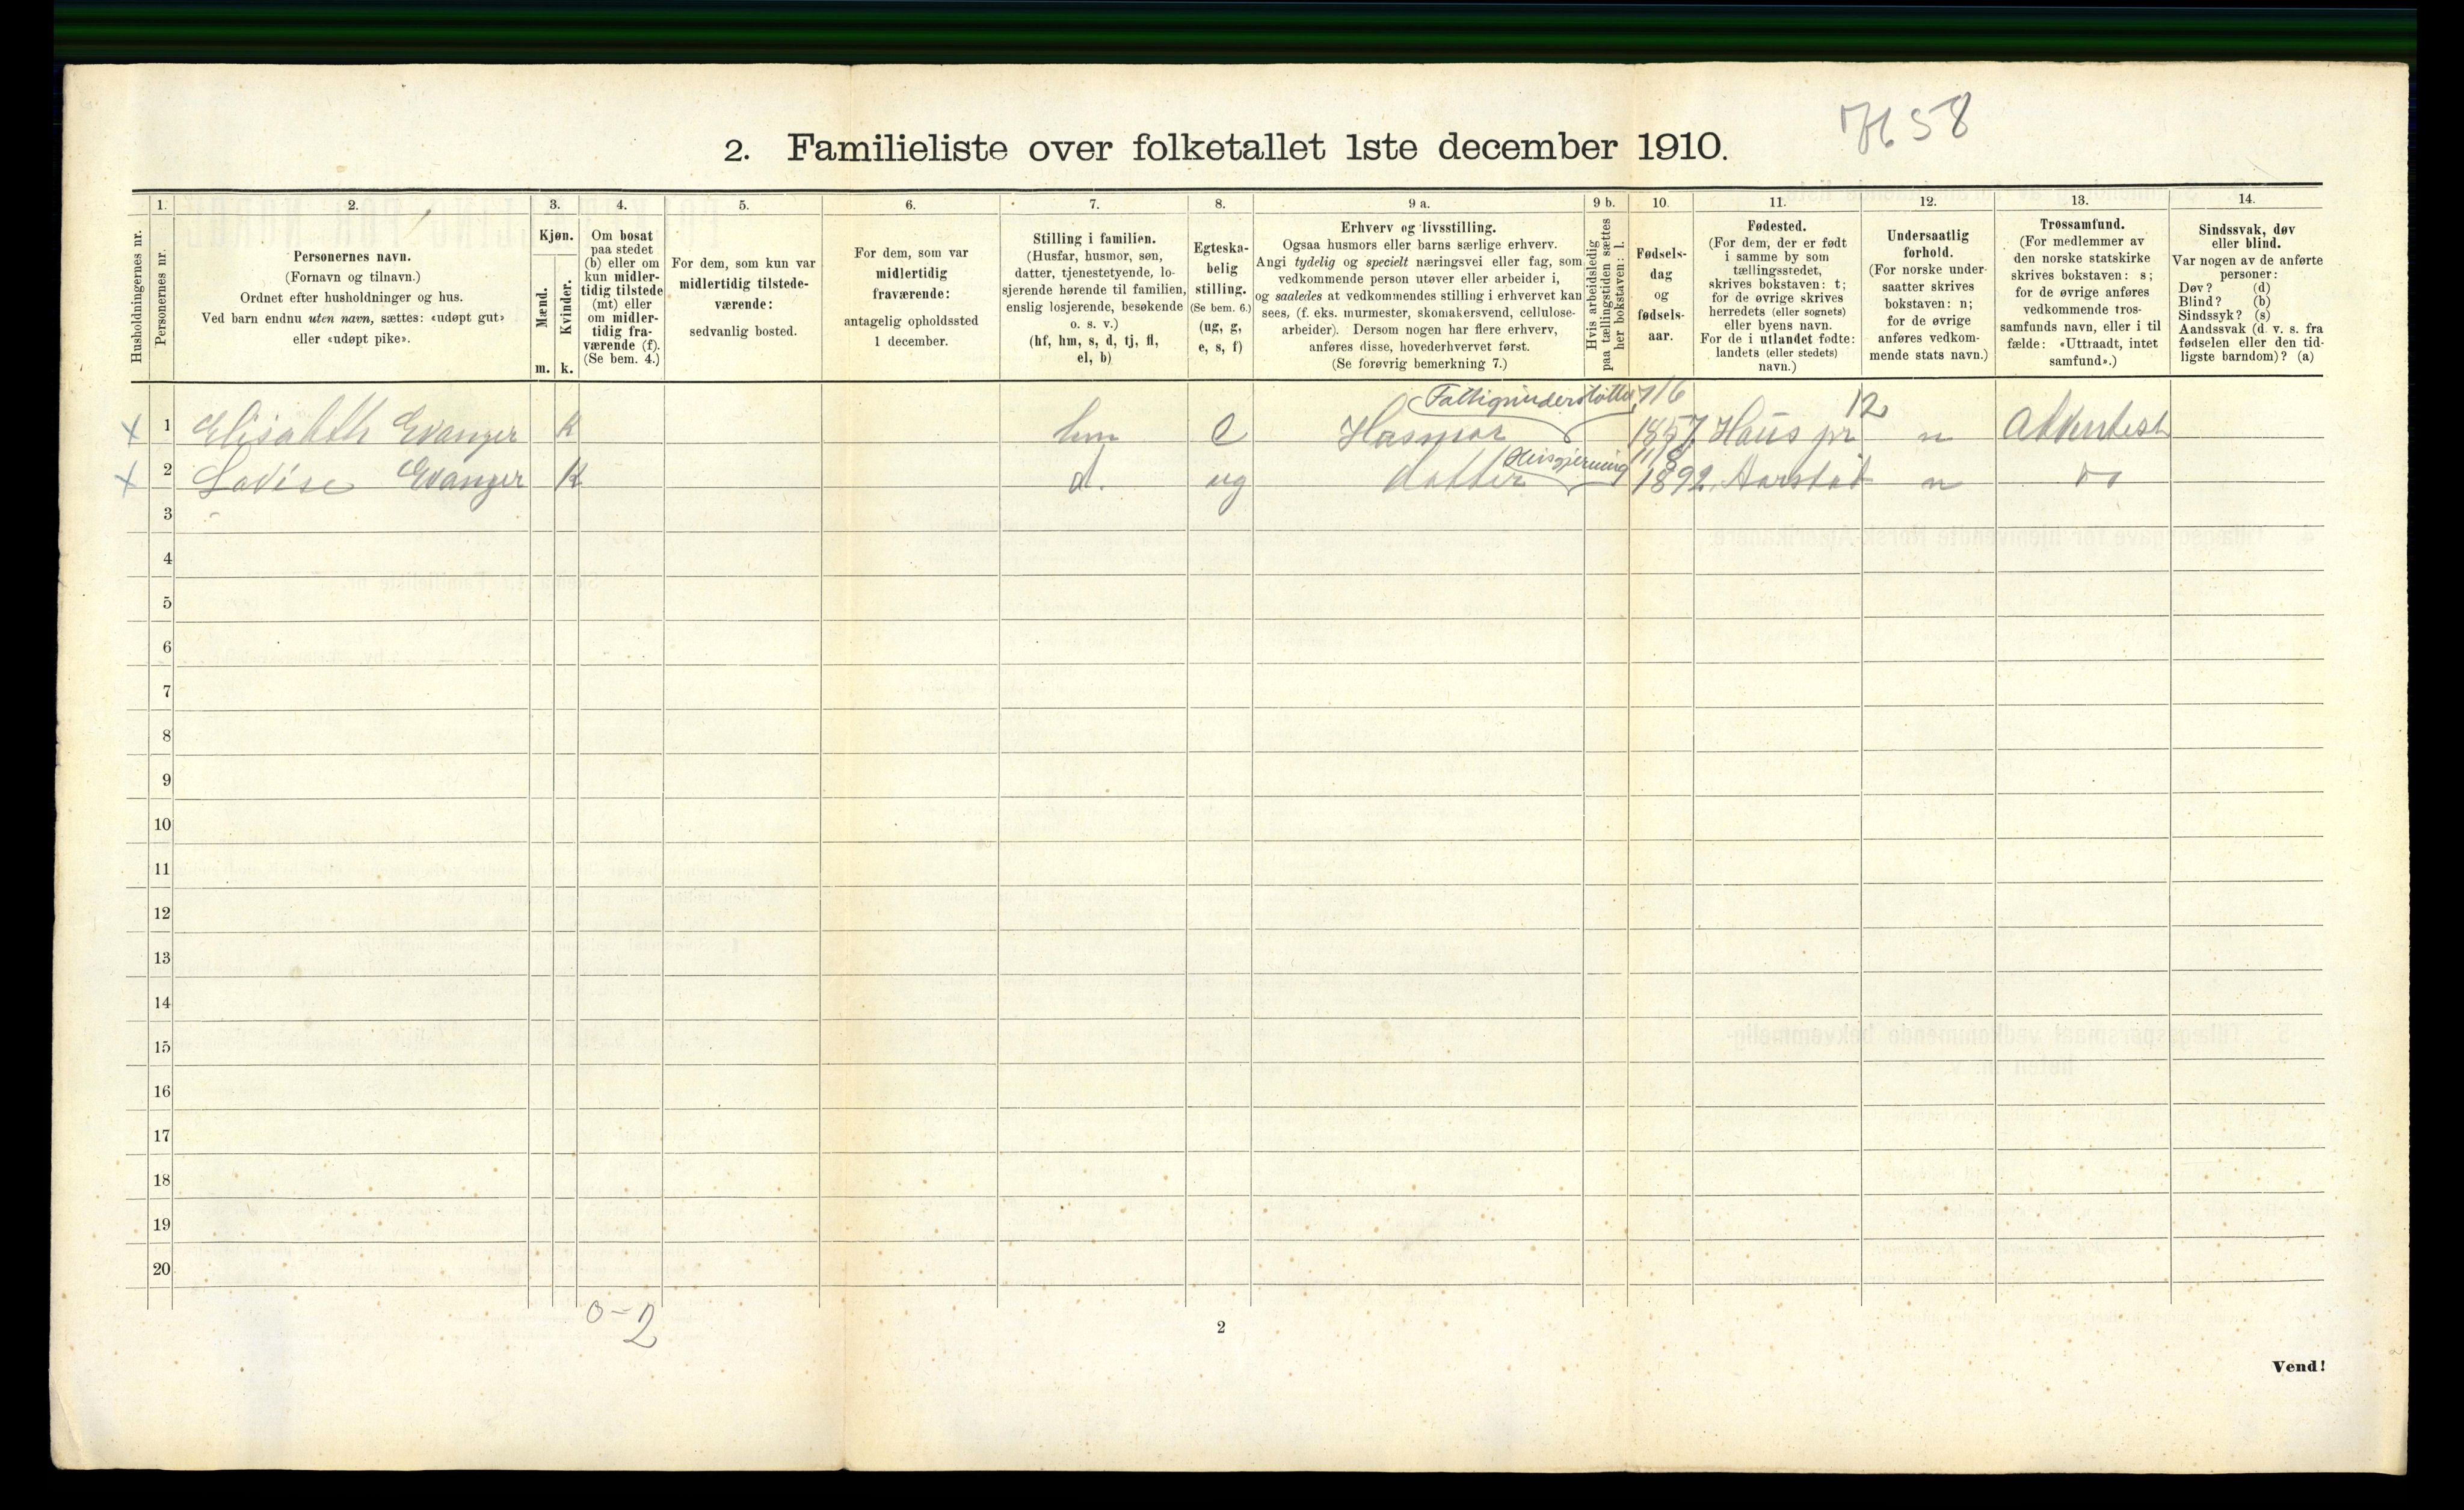 H 58
2. Familieliste over folketallet 1ste december 1910.
Husholdningernes nr.
1.
Personernes nr.
2.
Personernes navn.
(Fornavn og tilnavn.)
Ordnet efter husholdninger og hus.
Ved barn endnu uten navn, sættes: «udøpt gut»
eller «udøpt pike».
3.
Kjøn.
Mænd.
Kvinder.
m. k.
4.
Om bosat
paa stedet
(b) eller om
kun midler-
tidig tilstede
(mt) eller
om midler-
tidig fra-
værende (f).
(Se bem. 4.)
5.
For dem, som kun var
midlertidig tilstede-
værende:
sedvanlig bosted.
6.
For dem, som var
midlertidig
fraværende:
antagelig opholdssted
1 december.
7.
Stilling i familien.
(Husfar, husmor, søn,
datter, tjenestetyende, lo-
sjerende hørende til familien,
enslig losjerende, besøkende
o. s. v.)
(hf, hm, s, d, tj, fl,
el, b)
8.
Egteska-
belig
stilling.
(Se bem. 6.)
(ug, g,
e, s, f)
9 a.
Erhverv og livsstilling.
Ogsaa husmors eller barns særlige erhverv.
Angi tydelig og specielt næringsvei eller fag, som
vedkommende person utøver eller arbeider i,
og saaledes at vedkommendes stilling i erhvervet kan
sees, (f. eks. murmester, skomakersvend, cellulose-
arbeider). Dersom nogen har flere erhverv,
anføres disse, hovederhvervet først.
(Se forøvrig bemerkning 7.)
9 b.
Hvis arbeidsledig
paa tællingstiden sættes
her bokstaven: l.
10.
Fødsels-
dag
og
fødsels-
aar.
11.
Fødested.
(For dem, der er født
i samme by som
tællingsstedet,
skrives bokstaven: t;
for de øvrige skrives
herredets (eller sognets)
eller byens navn.
For de i utlandet fødte:
landets (eller stedets)
navn.)
12.
Undersaatlig
forhold.
(For norske under-
saatter skrives
bokstaven: n;
for de øvrige
anføres vedkom-
mende stats navn.)
13.
Trossamfund.
(For medlemmer av
den norske statskirke
skrives bokstaven: s;
for de øvrige anføres
vedkommende tros-
samfunds navn, eller i til
fælde: «Uttraadt, intet
samfund».)
14.
Sindssvak, døv
eller blind.
Var nogen av de anførte
personer:
Døv? (d)
Blind? (b)
Sindssyk? (s)
Aandssvak (d. v. s. fra
fødselen eller den tid-
ligste barndom)? (a)
Fattigunderstøttet 7/6 12
x 1 Elisabeth Evanger k hm e Husmor 1857 Haus pr n Adventist
Husgjerning 11/8
x 2 Lovise Evanger k d. ug datter 1892 Aarstad n do
3
4
5
6
7
8
9
10
11
12
13
14
15
16
17
18
19
20
0-2
2
Vend!